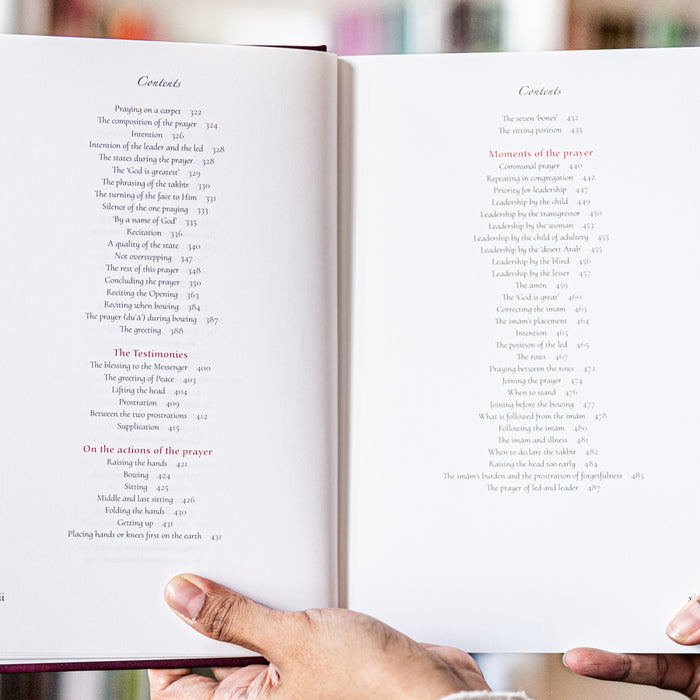 Contents
Praying on a carpet 322
The composition of the prayer 324
Intention 326
Intention of the leader and the led 328
The states during the prayer 328
The 'God is greatest' 329
The phrasing of the takbīr 330
The turning of the face to Him 331
Silence of the one praying 333
'By a name of God' 335
Recitation 336
A quality of the state 340
Not overstepping 347
The rest of this prayer 348
Concluding the prayer 350
Reciting the Opening 363
Reciting when bowing 384
The prayer (duʿāʾ) during bowing 387
The greeting 388
The Testimonies
The blessing to the Messenger 400
The greeting of Peace 403
Lifting the head 404
Prostration 409
Between the two prostrations 412
Supplication 415
On the actions of the prayer
Raising the hands 421
Bowing 424
Sitting 425
Middle and last sitting 426
Folding the hands 430
Getting up 431
Placing hands or knees first on the earth 431
Contents
The seven 'bones' 432
The sitting position 435
Moments of the prayer
Communal prayer 440
Repeating in congregation 442
Priority for leadership 447
Leadership by the child 449
Leadership by the transgressor 450
Leadership by the woman 453
Leadership by the child of adultery 455
Leadership by the 'desert Arab' 455
Leadership by the blind 456
Leadership by the lesser 457
The amīn 459
The 'God is great' 460
Correcting the imām 463
The imām's placement 464
Intention 465
The position of the led 465
The rows 467
Praying between the rows 472
Joining the prayer 474
When to stand 476
Joining before the bowing 477
What is followed from the imām 478
Following the imām 480
The imām and illness 481
When to declare the takbīr 482
Raising the head too early 484
The imām's burden and the prostration of forgetfulness 485
The prayer of led and leader 487